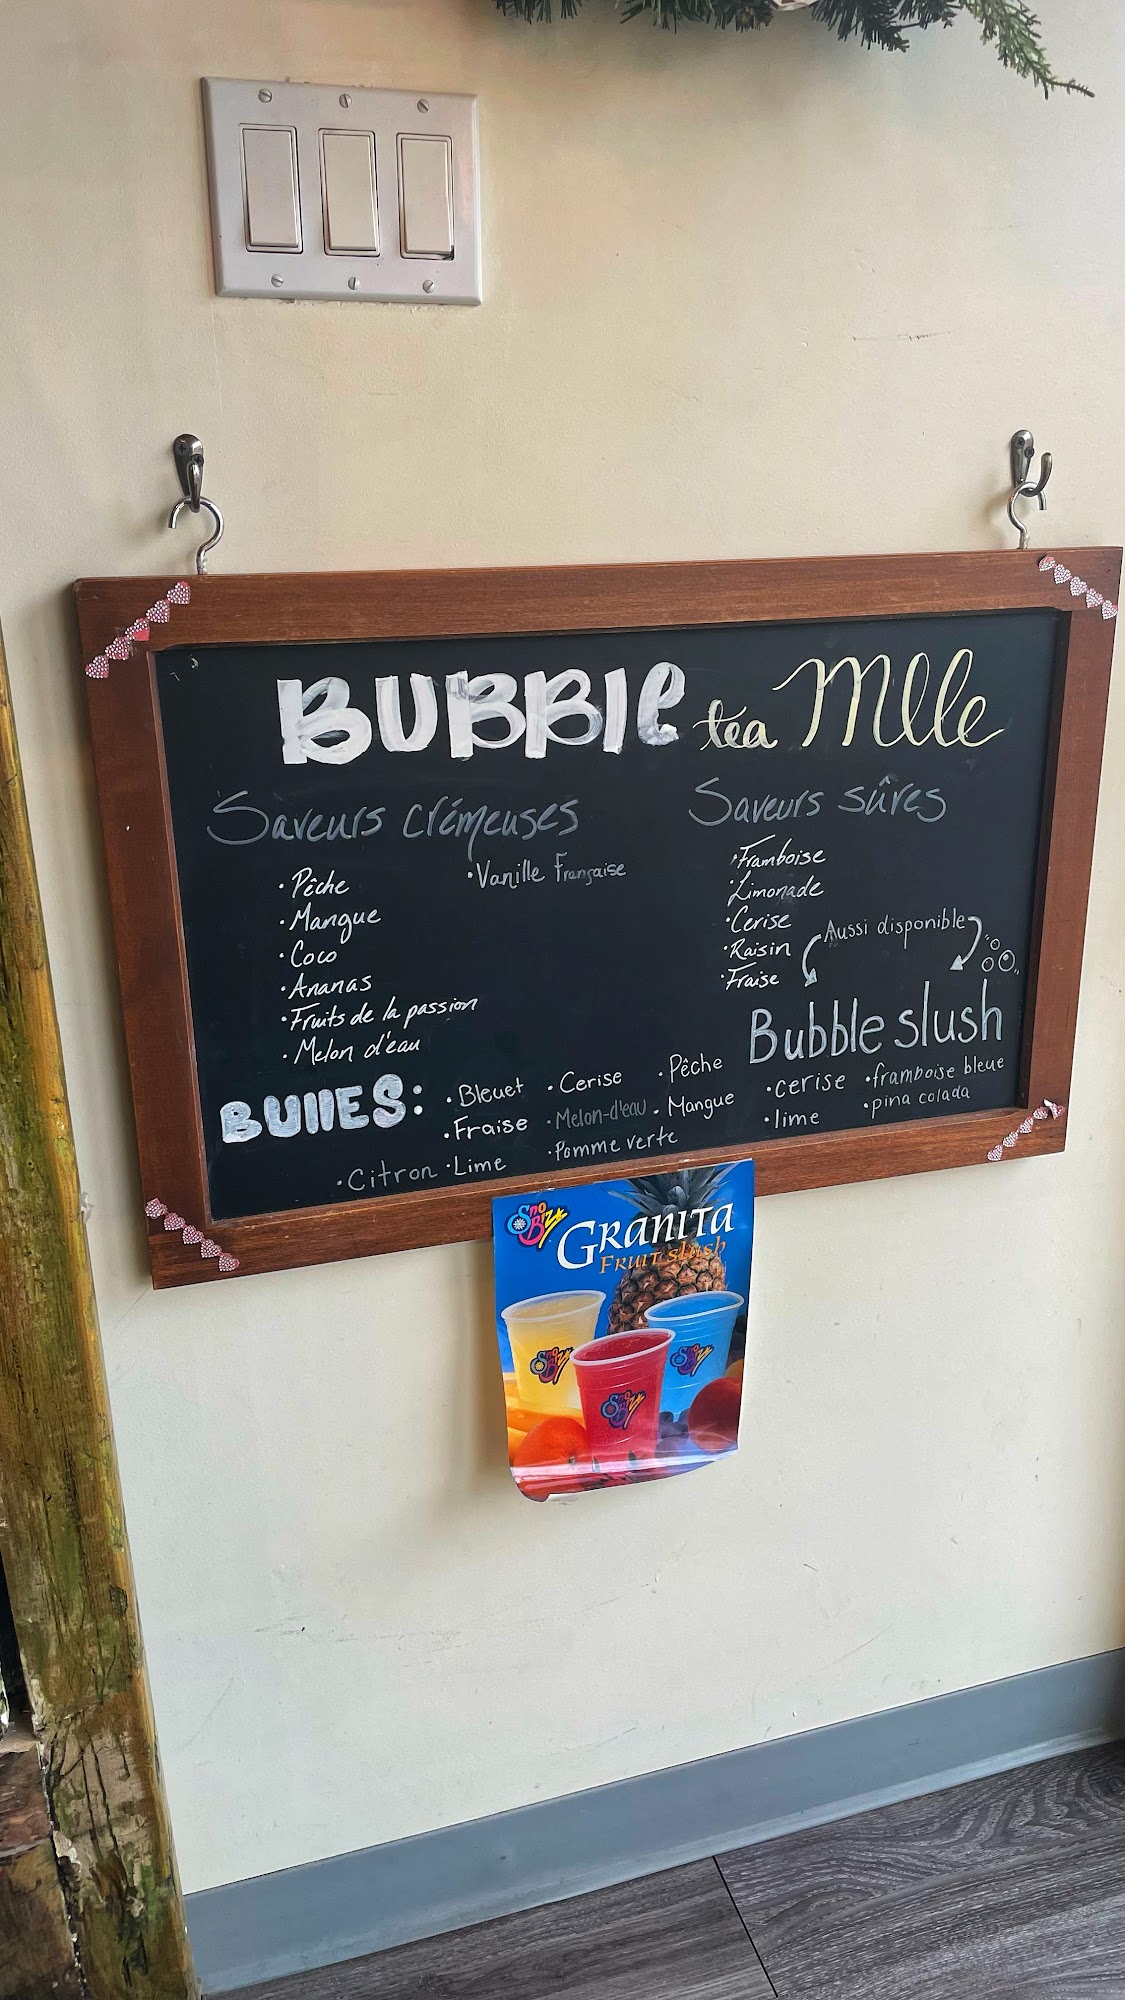 BUBBlE tea Mlle
Saveurs crémeuses
• Pêche
• Mangue
• Coco
• Ananas
• Fruits de la passion
• Melon d'eau
• Vanille Française
Saveurs sûres
• Framboise
• Limonade
• Cerise
• Raisin
• Fraise
Aussi disponible
Bubble slush
• cerise
• lime
• framboise bleue
• pina colada
BUllES:
• Bleuet
• Fraise
• Citron • Lime
• Cerise
• Melon-d'eau
• Pomme verte
• Pêche
• Mangue
Sno Biz
GRANITA
FRUIT slush
Sno Biz
Sno Biz
Sno Biz